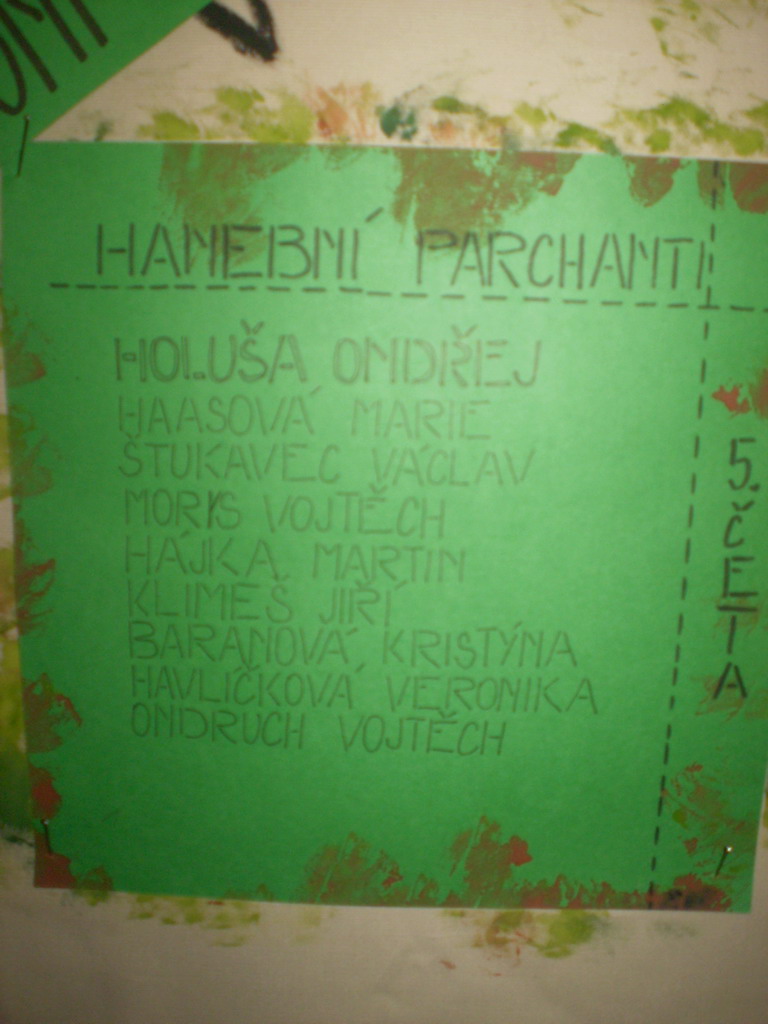 HANEBNÍ PARCHANTI
HOLUŠA ONDŘEJ
HAASOVÁ MARIE
ŠTUKAVEC VÁCLAV
MORYS VOJTĚCH
HÁJKA MARTIN
KLIMEŠ JIŘÍ
BARANOVÁ KRISTÝNA
HAVLÍČKOVÁ VERONIKA
ONDRUCH VOJTĚCH
5. ČETA